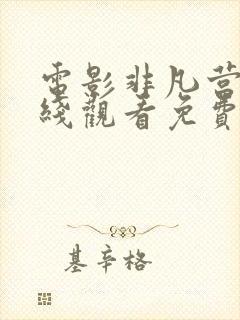 電影非凡營
綫觀看免費
基辛格